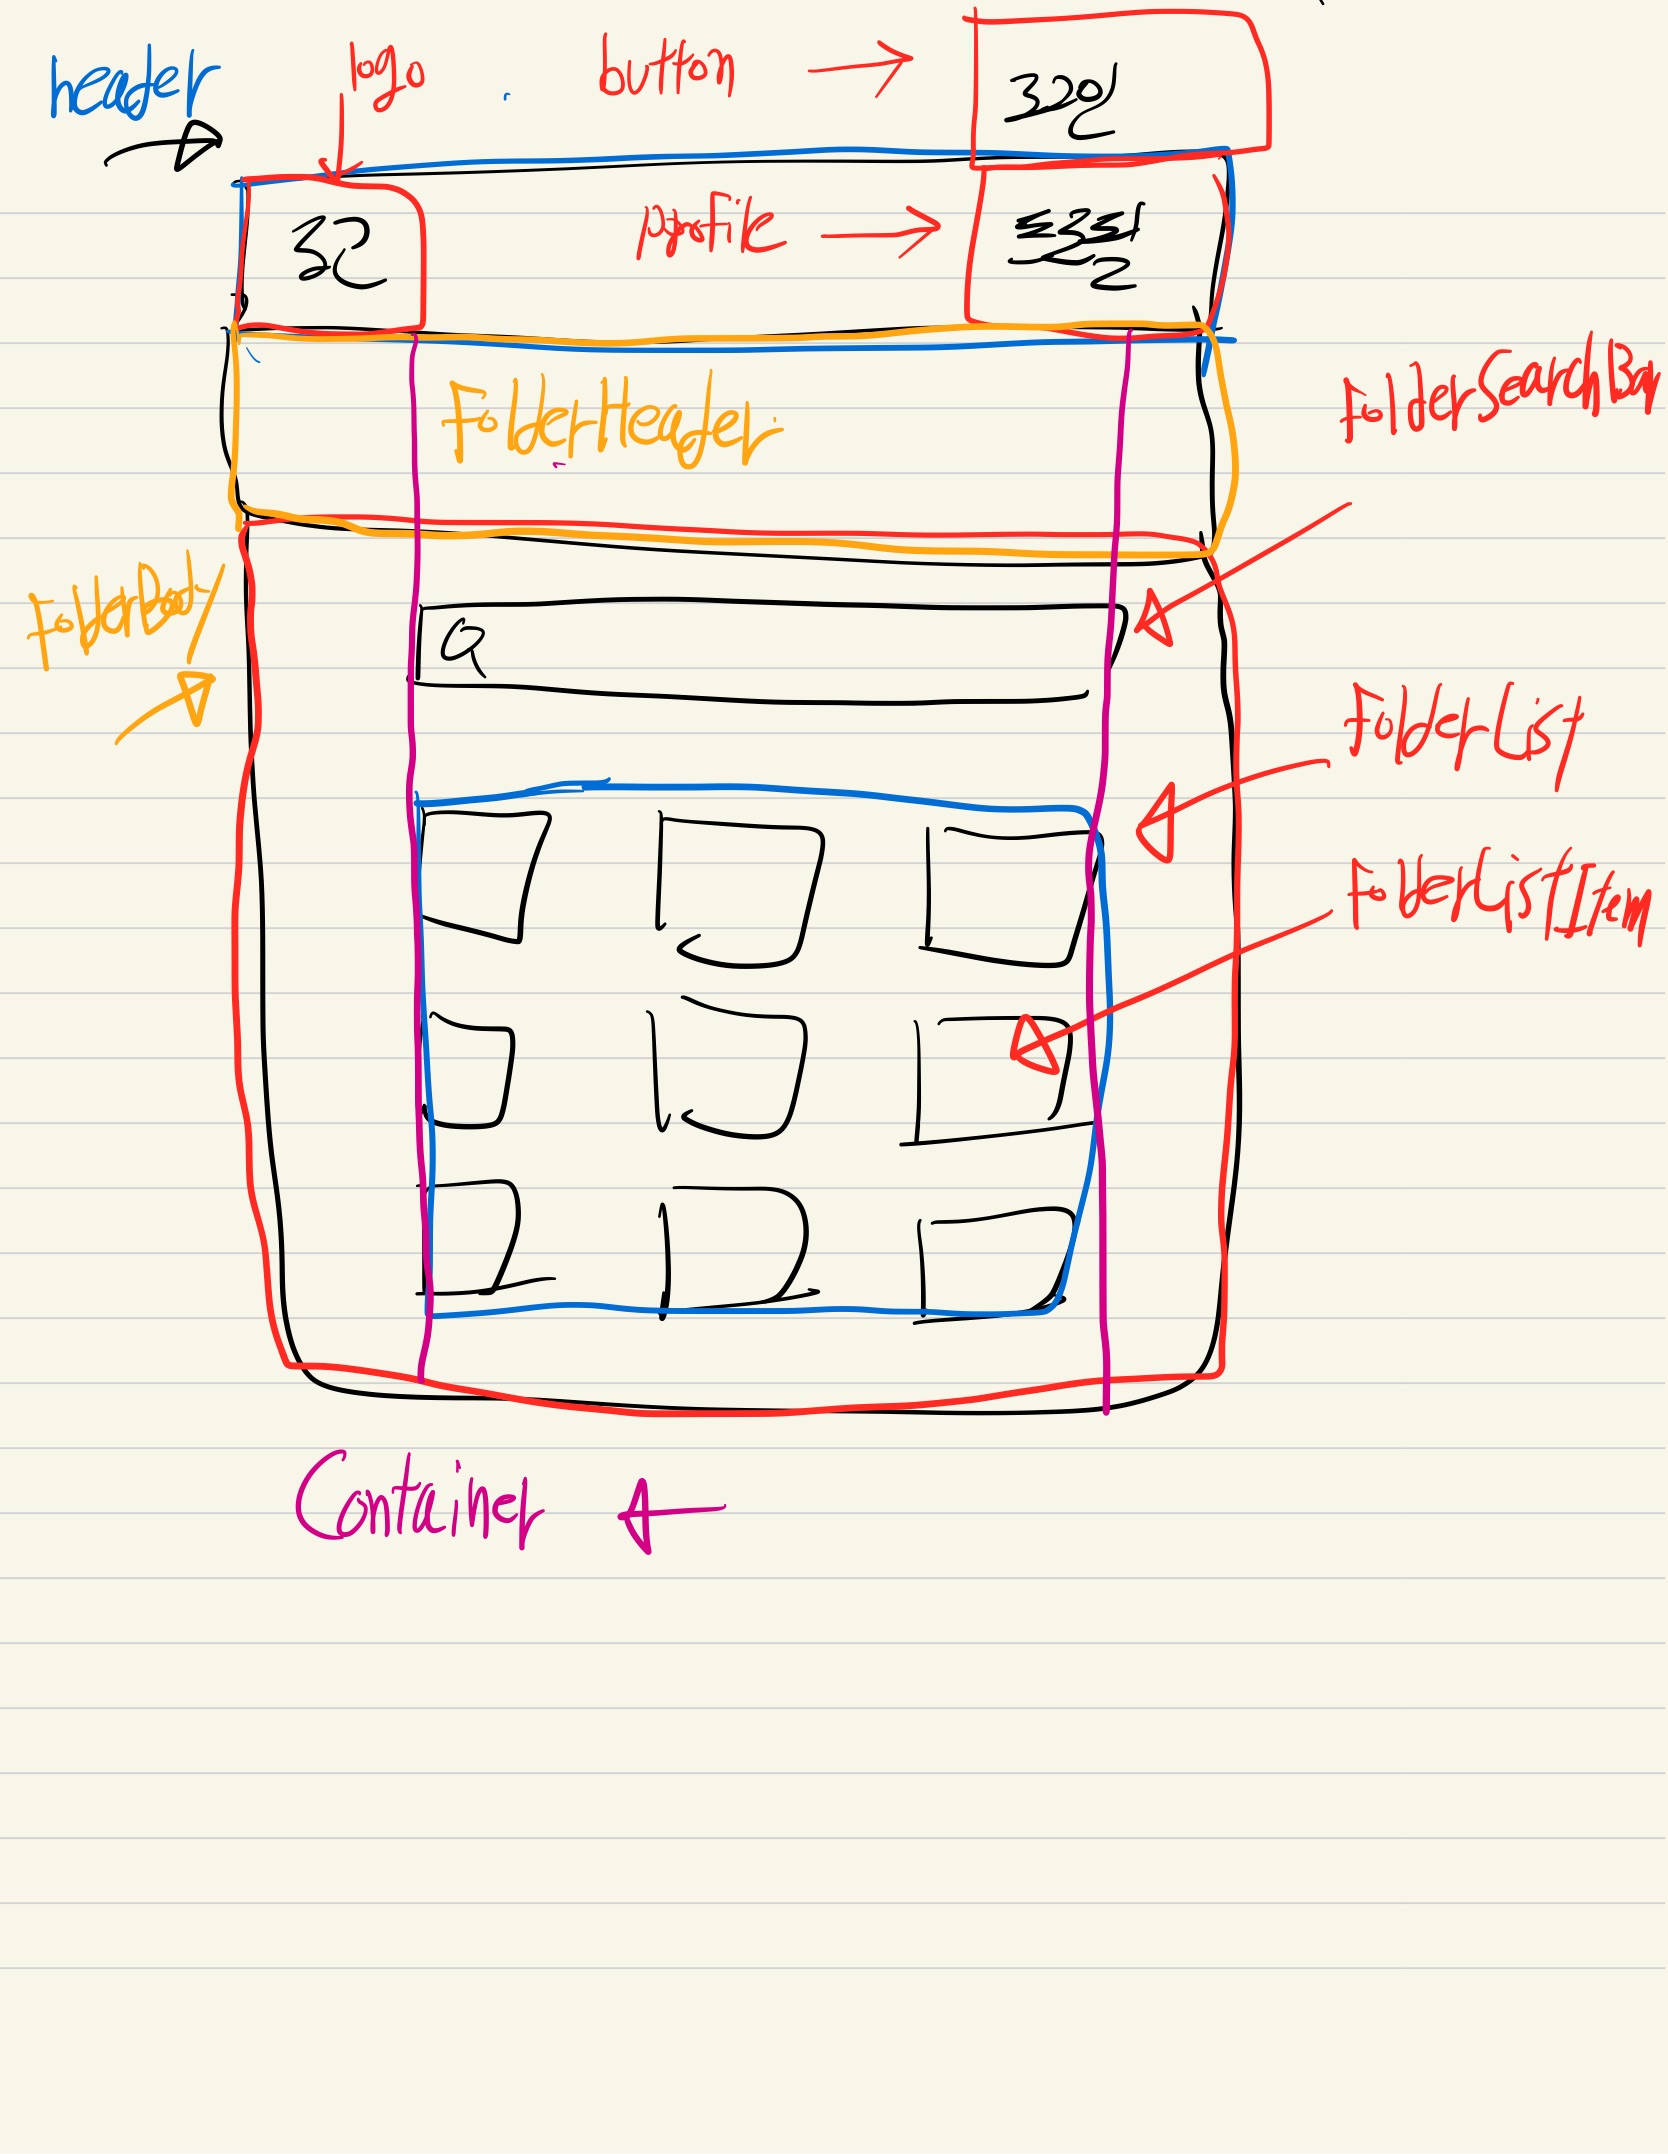 header
logo
button
profile
FolderHeader
FolderSearchBar
FolderBody
FolderList
FolderListItem
Container